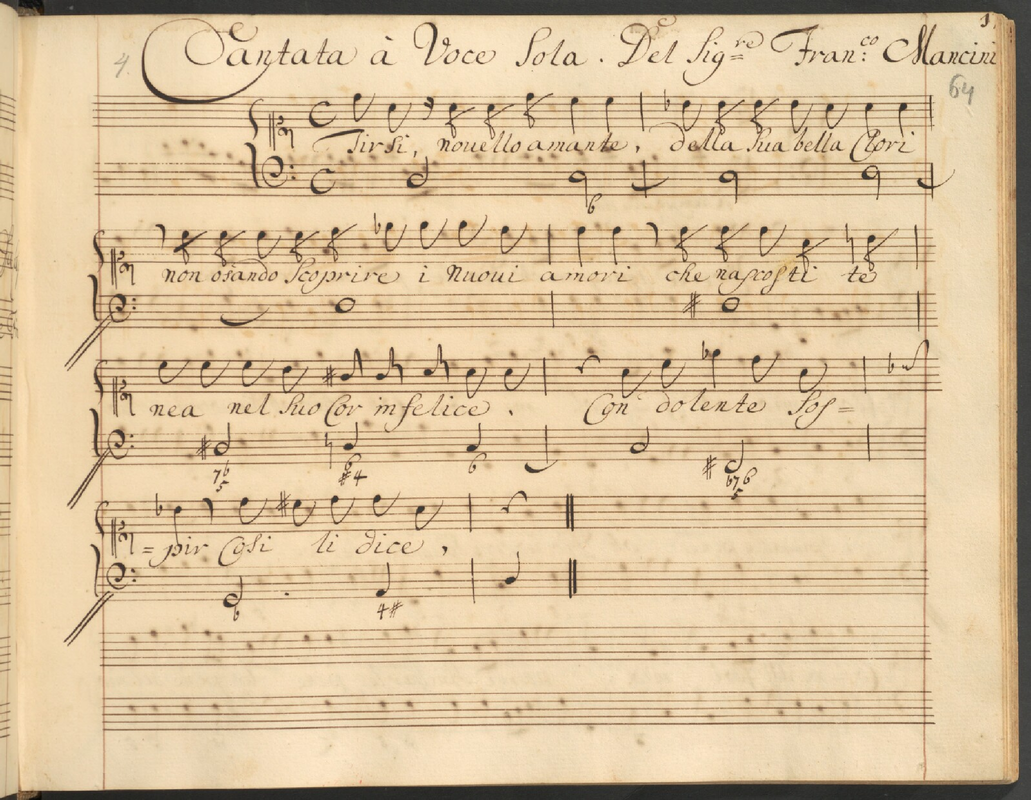 1
4. Cantata à Voce Sola. Del Sig.re Fran.co Mancini
64
Tirsi, nouello amante, della sua bella Clori
6
non osando scoprire i nuoui amori che nascosti te
nea nel suo Cor infelice. Con dolente sos=
7 6 5 6 #4 6 b7 6 5
=pir Cosi li dice,
6 4#